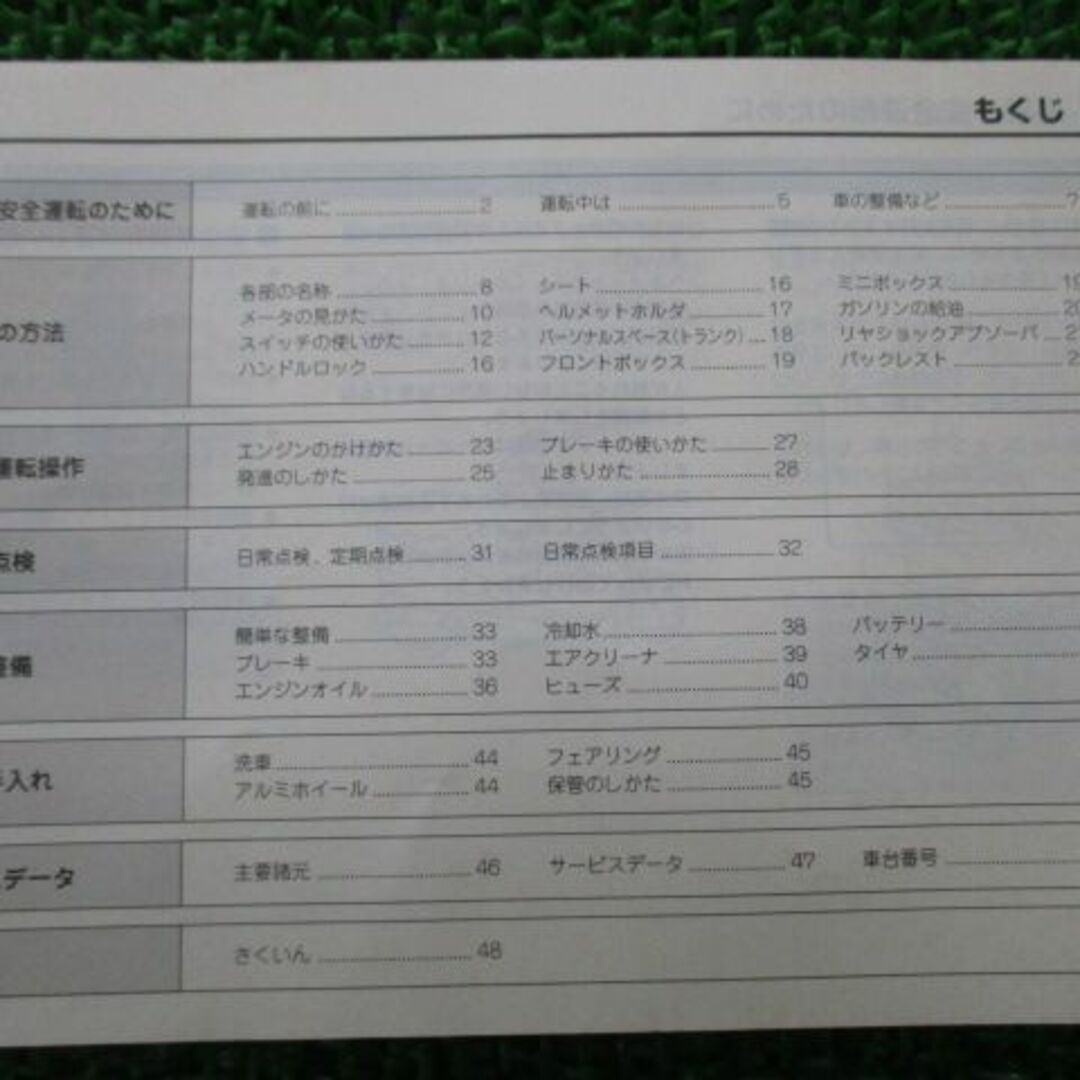 もくじ
安全運転のために
運転の前に 2 運転中は 5 車の整備など 7
の方法
各部の名称 8 シート 16 ミニボックス 19
メータの見かた 10 ヘルメットホルダ 17 ガソリンの給油 20
スイッチの使いかた 12 パーソナルスペース(トランク) 18 リヤショックアブソーバ
ハンドルロック 16 フロントボックス 19 バックレスト
運転操作
エンジンのかけかた 23 ブレーキの使いかた 27
発進のしかた 25 止まりかた 28
点検
日常点検、定期点検 31 日常点検項目 32
整備
簡単な整備 33 冷却水 38 バッテリー
ブレーキ 33 エアクリーナ 39 タイヤ
エンジンオイル 36 ヒューズ 40
手入れ
洗車 44 フェアリング 45
アルミホイール 44 保管のしかた 45
データ
主要諸元 46 サービスデータ 47 車台番号
さくいん 48